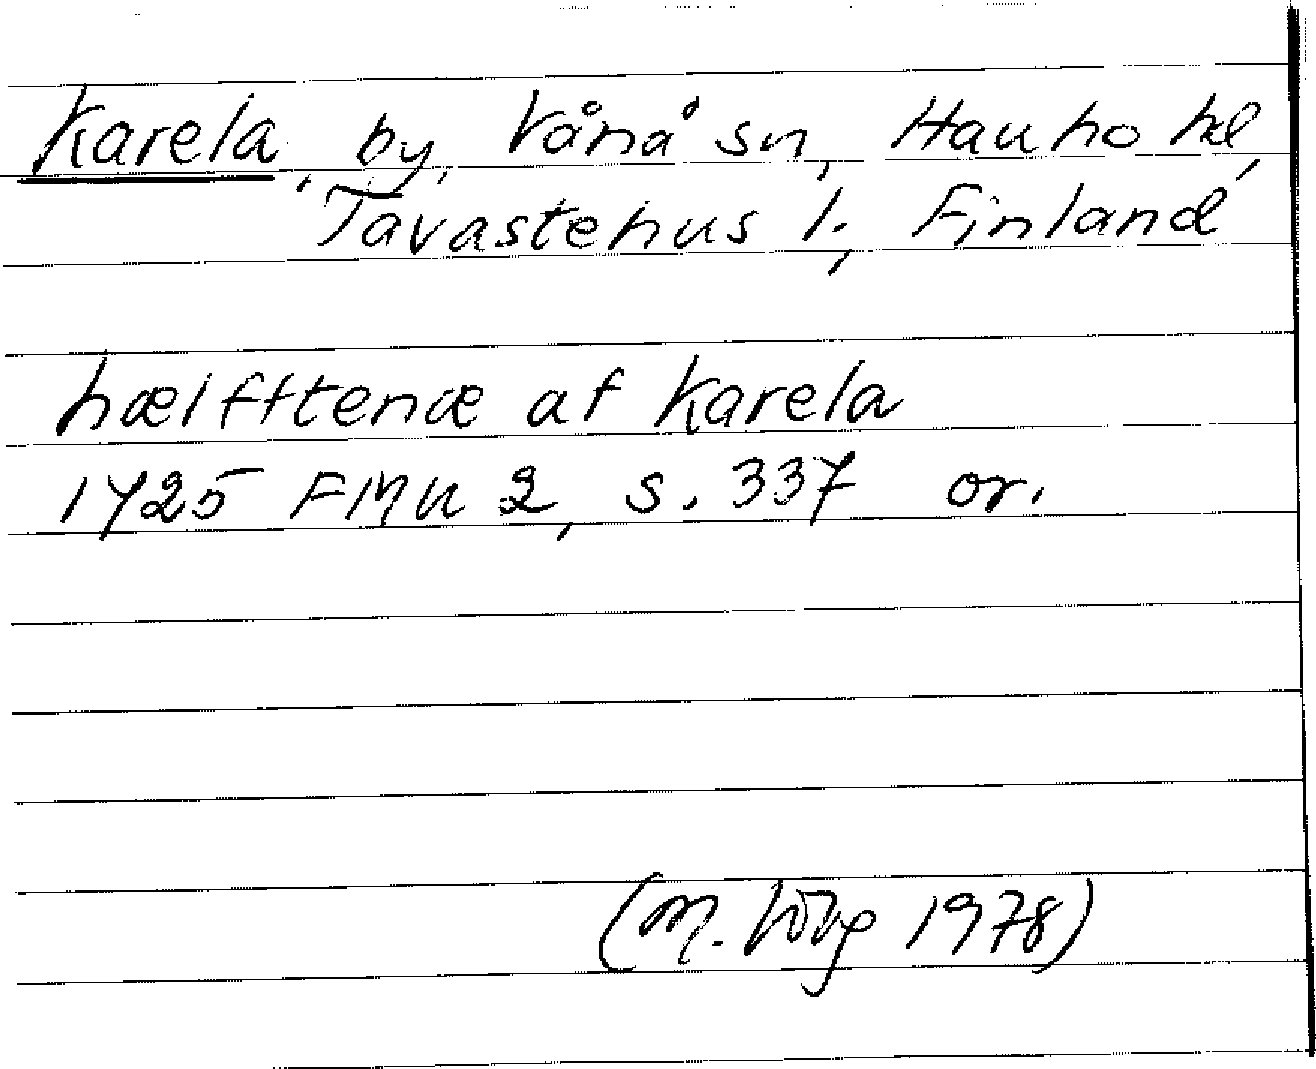 Karela, by, Vånå sn, Hauho hd,
Tavastehus l., Finland
hælfftenæ af Karela
1425 FMU 2, s. 337 or.
(M. 1978)